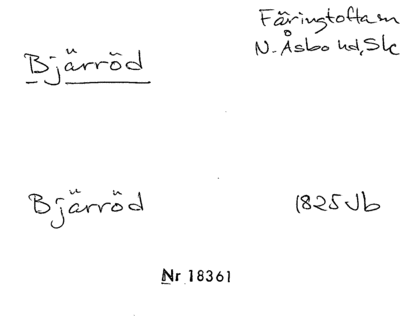 Färingtofta sn
N. Åsbo hd, Sk
Bjärröd
Bjärröd 1825 Jb
Nr 18361